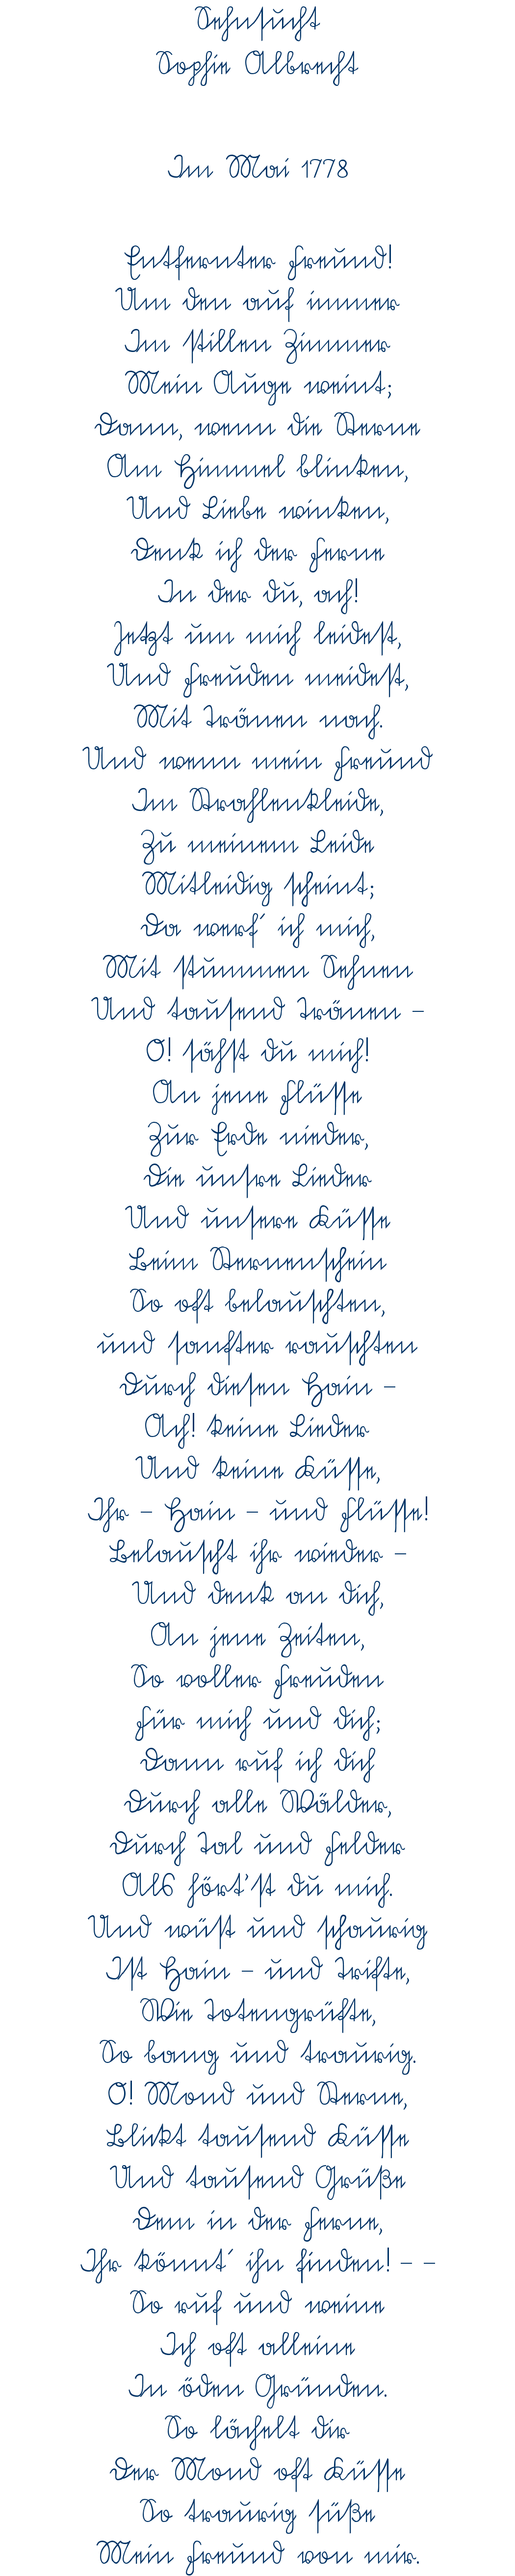 Sehnsucht
Sophie Albrecht
Im Mai 1778
Entfernter Freund!
Um den auf immer
Im stillen Zimmer
Mein Auge weint;
Dann, wenn die Sterne
Am Himmel blinken,
Und Liebe winken,
Denk ich der Ferne
In der du, ach!
Jetzt um mich leidest,
Und Freuden meidest,
Mit Tränen nach.
Und wenn mein Freund
Im Strahlenkleide,
Zu meinem Leide
Mitleidig scheint;
Da werf´ ich mich,
Mit stummen Sehnen
Und tausend Tränen –
O! sähst du mich!
An jene Flüsse
Zur Erde nieder,
Die unsre Lieder
Und unsere Küsse
Beim Sternenschein
So oft belauschten,
und sanfter rauschten
Durch diesen Hain –
Ach! keine Lieder
Und keine Küsse,
Ihr – Hain – und Flüsse!
Belauscht ihr wieder –
Und denk an dich,
An jene Zeiten,
So voller Freuden
Für mich und dich;
Dann ruf ich dich
Durch alle Wälder,
Durch Tal und Felder
Als hört'st du mich.
Und wüst und schaurig
Ist Hain – und Trifte,
Wie Totengrüfte,
So bang und traurig.
O! Mond und Sterne,
Blickt tausend Küsse
Und tausend Grüße
Dem in der Ferne,
Ihr könnt´ ihn finden! – –
So ruf und weine
Ich oft alleine
In öden Gründen.
So lächelt dir
Der Mond oft Küsse
So traurig süße
Mein Freund von mir.